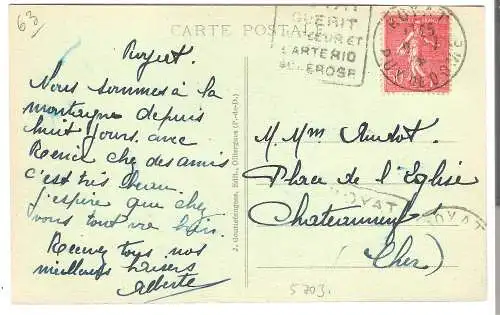 630
CARTE POSTALE
GUÉRIT
LE CŒUR ET
L'ARTÉRIO
SCLÉROSE
ROYAT
PUY-DE-DÔME
Royat.
Nous sommes à la
montagne depuis
huit jours. avec
Renée chez des amis
c'est très beau.
j'espère que chez
vous tout va bien.
Recevez tous nos
meilleurs baisers
Alberte
J. Gouttefangeas, Édit., Olliergues (P.-de-D.)
M. Mme
Place de l'Eglise
Chateauneuf
(Cher)
ROYAT
ROYAT
5703.